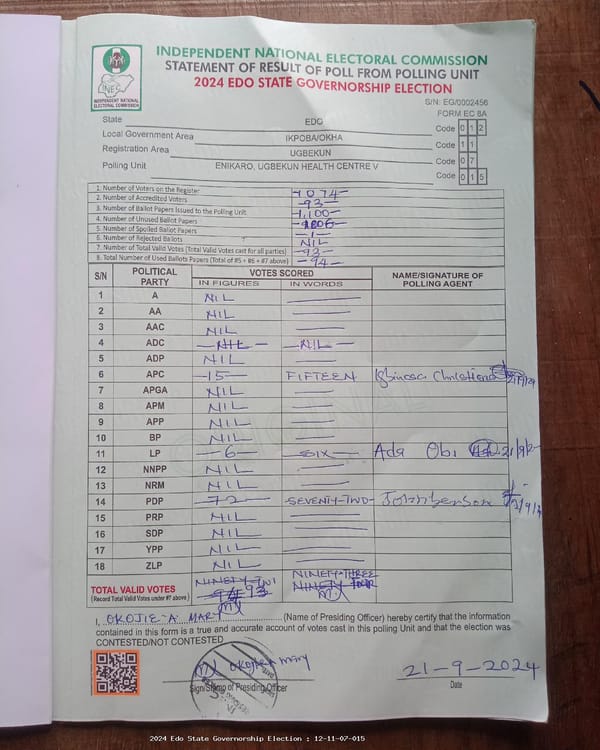 INDEPENDENT NATIONAL ELECTORAL COMMISSION
STATEMENT OF RESULT OF POLL FROM POLLING UNIT
2024 EDO STATE GOVERNORSHIP ELECTION
INEC
INDEPENDENT NATIONAL
ELECTORAL COMMISSION
S/N: EG/0002456
FORM EC 8A
State EDO Code 0 1 2
Local Government Area IKPOBA/OKHA Code 1 1
Registration Area UGBEKUN Code 0 7
Polling Unit ENIKARO, UGBEKUN HEALTH CENTRE V Code 0 1 5
1. Number of Voters on the Register 1074
2. Number of Accredited Voters -93-
3. Number of Ballot Papers Issued to the Polling Unit 1,100
4. Number of Unused Ballot Papers 1006
5. Number of Spoiled Ballot Papers -1-
6. Number of Rejected Ballots NIL
7. Number of Total Valid Votes (Total Valid Votes cast for all parties) -93-
8. Total Number of Used Ballots Papers (Total of #5 + #6 + #7 above) -94-
S/N POLITICAL PARTY VOTES SCORED NAME/SIGNATURE OF POLLING AGENT
IN FIGURES IN WORDS
1 A NIL
2 AA NIL
3 AAC NIL
4 ADC NIL NIL
5 ADP NIL
6 APC -15- FIFTEEN Igbinosa Christiana
7 APGA NIL
8 APM NIL
9 APP NIL
10 BP NIL
11 LP -6- SIX Ada Obi 21/9/2
12 NNPP NIL
13 NRM NIL
14 PDP -72- SEVENTY-TWO- Johnbenson
15 PRP NIL
16 SDP NIL
17 YPP NIL
18 ZLP NIL
TOTAL VALID VOTES 93 NINETY-THREE
(Record Total Valid Votes under #7 above)
I, OKOJIE A. MARY (Name of Presiding Officer) hereby certify that the information
contained in this form is a true and accurate account of votes cast in this polling Unit and that the election was
CONTESTED/NOT CONTESTED
Okojie Mary
21-9-2024
Sign/Stamp of Presiding Officer Date
2024 Edo State Governorship Election : 12-11-07-015